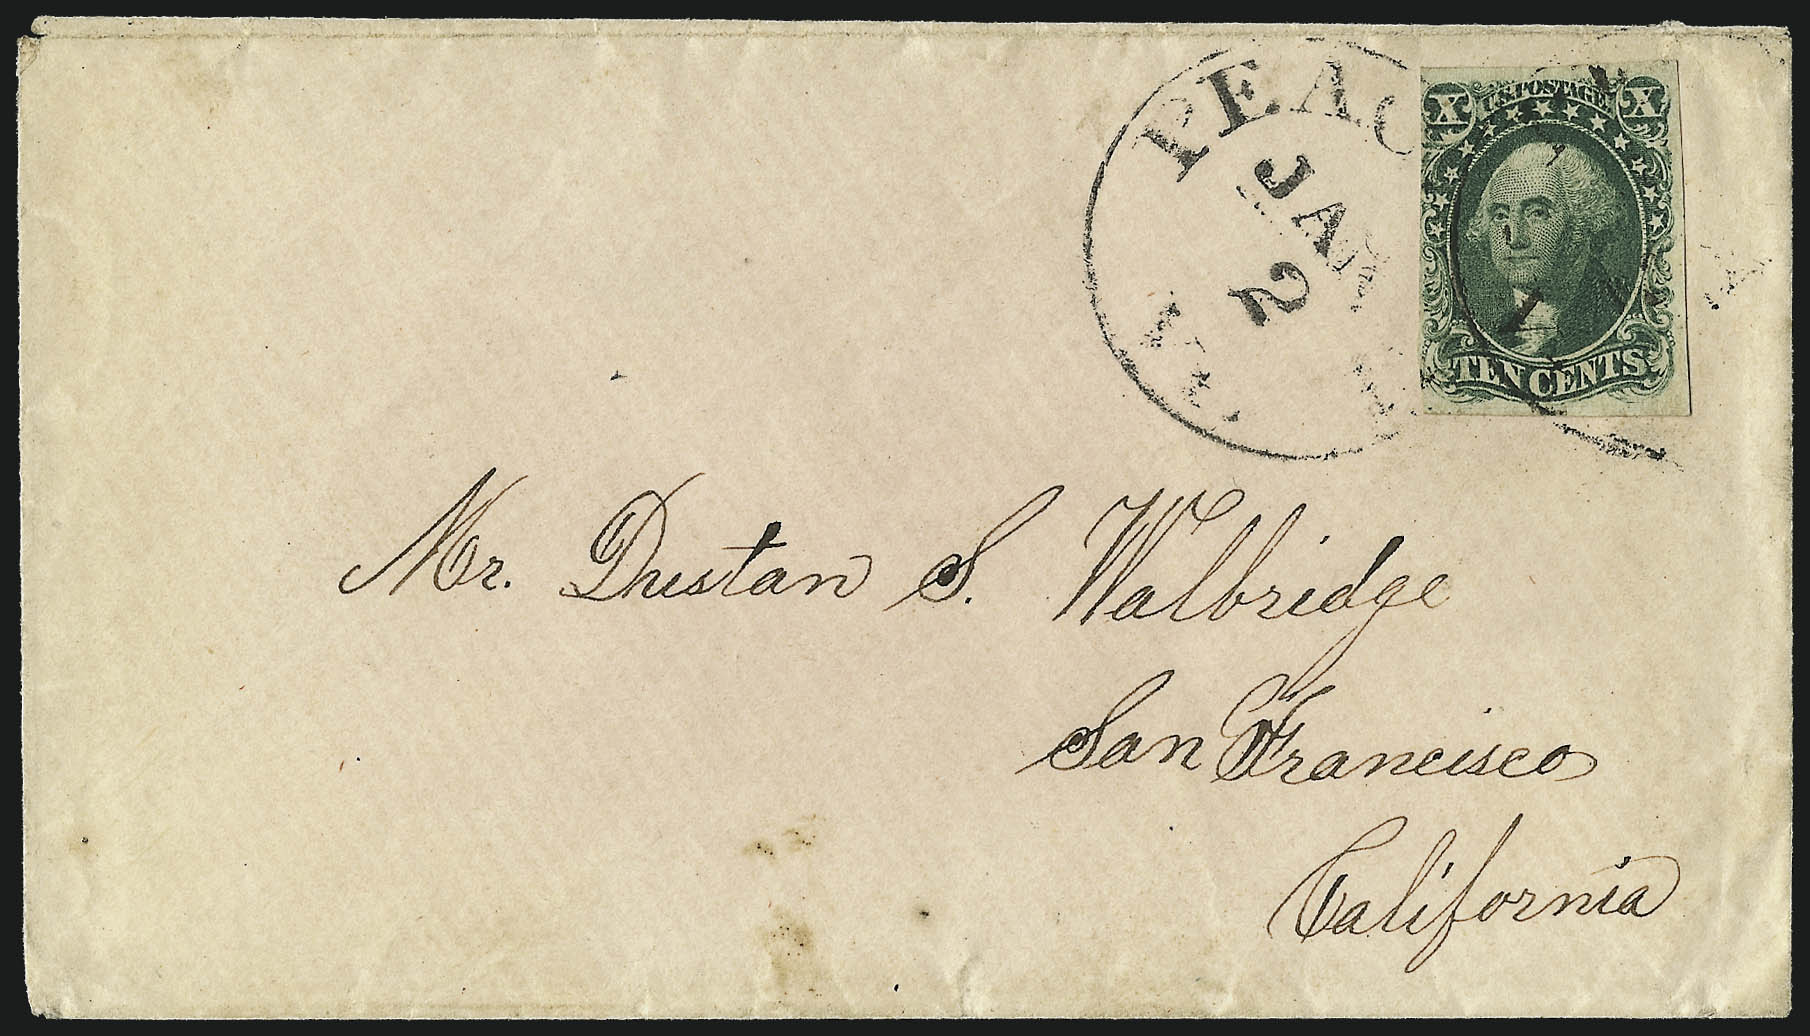 PEAC
JAN
2
Vt.
X U.S. POSTAGE X
TEN CENTS
Mr. Dustan S. Walbridge
San Francisco
California